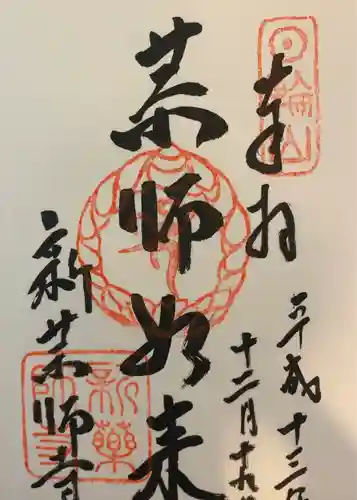 日輪山
奉拝
平成十三年
十二月十九
薬師如来
新薬師寺
新薬師寺